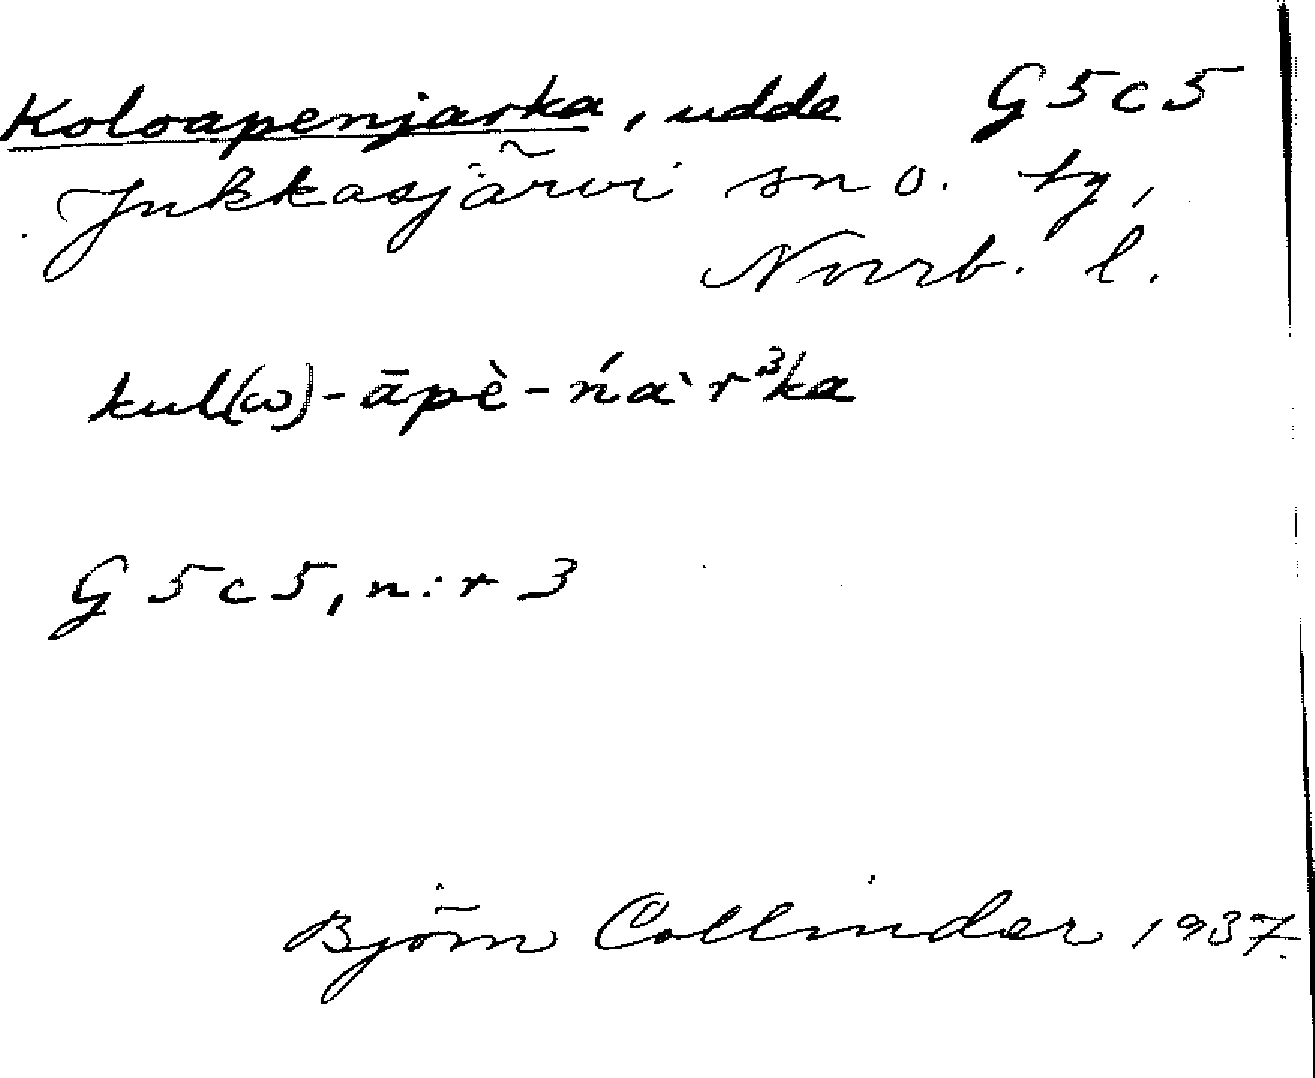 Koloapenjarka, udde G5c5
Jukkasjärvi sn o. tg,
Norrb. l.
kul(ω)-āpè-ńàrᶾka
G5c5, n:r 3
Björn Collinder 1937.